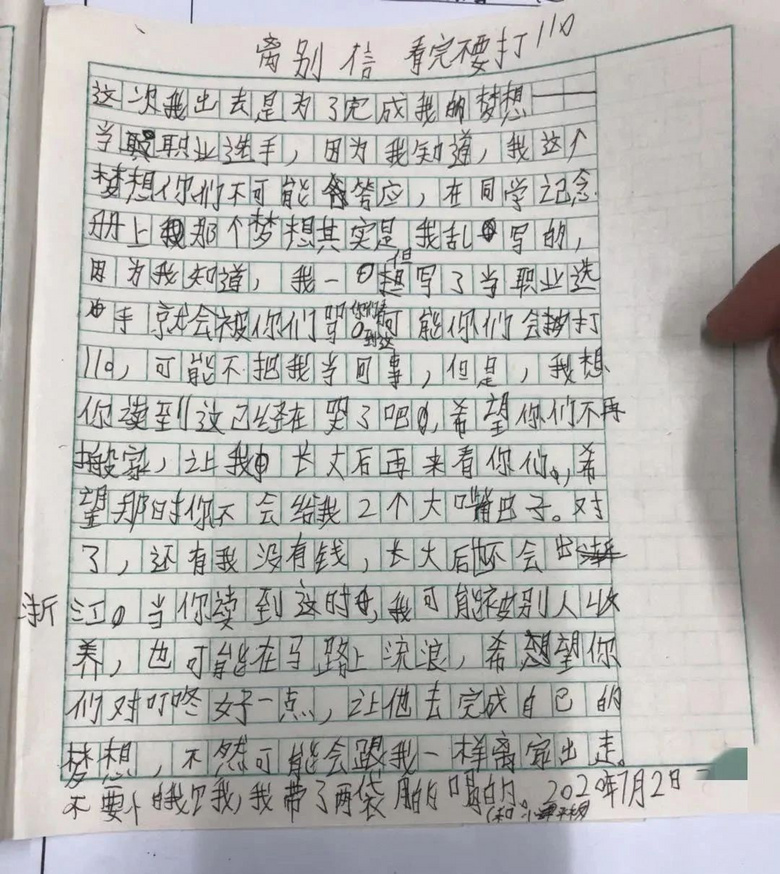 离别信 看完不要打110
这次我出去是为了完成我的梦想——
当职业选手，因为我知道，我这个
梦想你们不可能答应，在同学记念
册上我那个梦想其实是我乱写的，
因为我知道，我一但写了当职业选
手就会被你们骂你们看到这可能你们会打
110，可能不把我当回事，但是，我想
你读到这已经在哭了吧，希望你们不再
搬家，让我长大后再来看你们，希
望那时你不会给我2个大嘴巴子。对
了，还有我没有钱，长大后还不会出
浙江。当你读到这时，我可能被别人收
养，也可能在马路上流浪，希望你
们对叮咚好一点，让他去完成自己的
梦想，不然可能会跟我一样离家出走。
不要 我，我带了两袋 的喝的。2020年7月2日